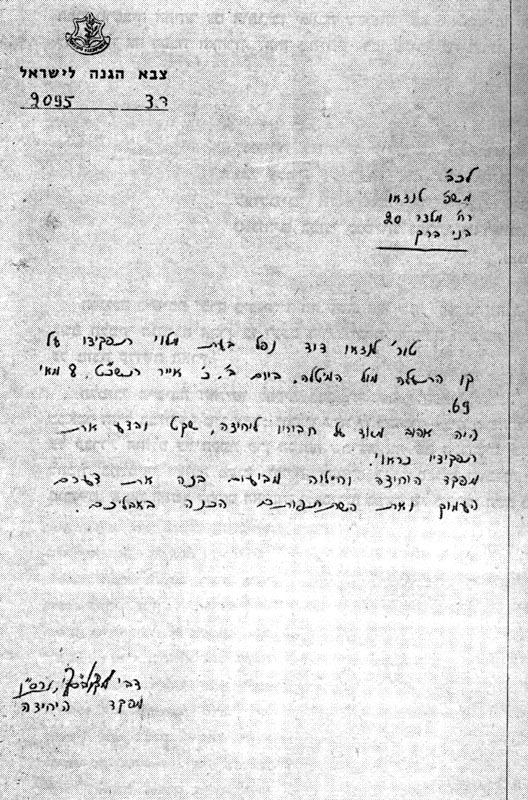 צבא הגנה לישראל
ד.צ 2095
לכב'
משפ' לנדאו
רח' מלצר 20
בני ברק
טור' לנדאו דוד נפל בעת מלוי תפקידו על
קו התעלה מול המיטלה, ביום ב', כ' אייר תשכ"ט, 8 מאי
69.
היה אהוב מאוד על חבריו ליחידה, שקט וידע את
תפקידיו כראוי.
מפקד היחידה וחייליה מביעים בזה את צערם
העמוק ואת השתתפותם הכנה באבלכם.
דבי רס"ן
מפקד היחידה